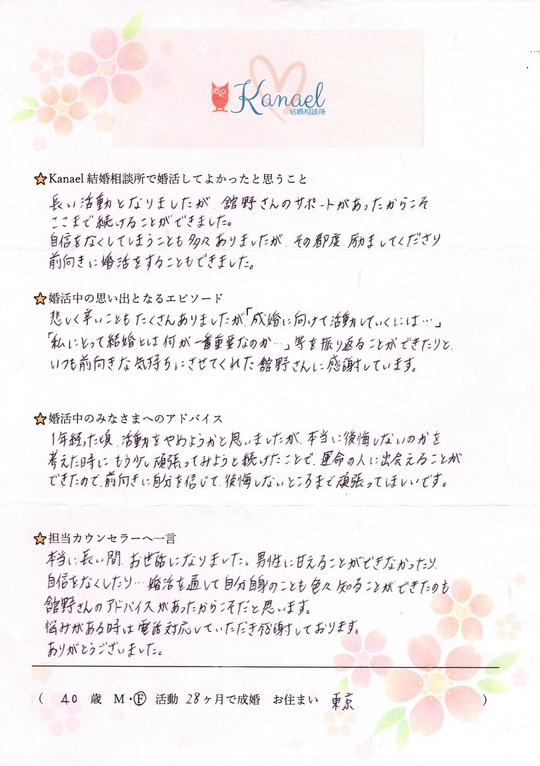 Kanael
結婚相談所
Kanael 結婚相談所で婚活してよかったと思うこと
長い活動となりましたが、舘野さんのサポートがあったからこそ
ここまで続けることができました。
自信をなくしてしまうことも多々ありましたが、その都度、励ましてくださり
前向きに婚活をすることもできました。
婚活中の思い出となるエピソード
悲しく辛いこともたくさんありましたが、「成婚に向けて活動していくには…」
「私にとって結婚とは何が一番重要なのか…」等を振り返ることができたりと、
いつも前向きな気持ちにさせてくれた舘野さんに感謝しています。
婚活中のみなさまへのアドバイス
1年経った頃、活動をやめようかと思いましたが、本当に後悔しないのかを
考えた時に もう少し頑張ってみようと続けたことで、運命の人に出会えることが
できたので、前向きに自分を信じて、後悔しないところまで頑張ってほしいです。
担当カウンセラーへ一言
本当に長い間、お世話になりました。男性に甘えることができなかったり、
自信をなくしたり… 婚活を通して自分自身のことも色々知ることができたのも
舘野さんのアドバイスがあったからこそだと思います。
悩みがある時は電話対応していただき感謝しております。
ありがとうございました。
( 40 歳 M・Ⓕ 活動 28ヶ月で成婚 お住まい 東京 )